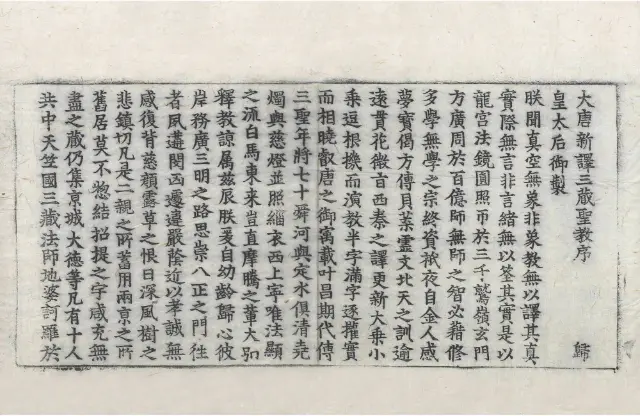 大唐新譯三藏聖教序 歸
皇太后御製
朕聞真空無象非象教無以譯其真
實際無言非言緒無以筌其實是以
龍宮法鏡圓照帀於三千鷲嶺玄門
方廣周於百億師無師之智必藉修
多學無學之宗終資祇夜自金人感
夢寶偈方傳貝葉靈文北天之訓逾
遠貫花微旨西秦之譯更新大乗小
乗逗根機而演教半字滿字逐權實
而相曉叡唐之御寓載叶昌期代傳
三聖年將七十舜河與定水俱清堯
燭與慈燈並照緇衣西上寧唯法顯
之流白馬東来豈直摩騰之輩大弘
釋教諒屬茲辰朕爰自幼齡歸心彼
岸務廣三明之路思崇八正之門往
者夙遘閔凶遄違嚴蔭近以孝誠無
感復背慈顏露草之恨日深風樹之
悲鎮切凡是二親之所蓄用兩京之所
舊居莫不惣結招提之宇咸充無
盡之藏仍集京城大德等凡有十人
共中天竺國三藏法師地婆訶羅於